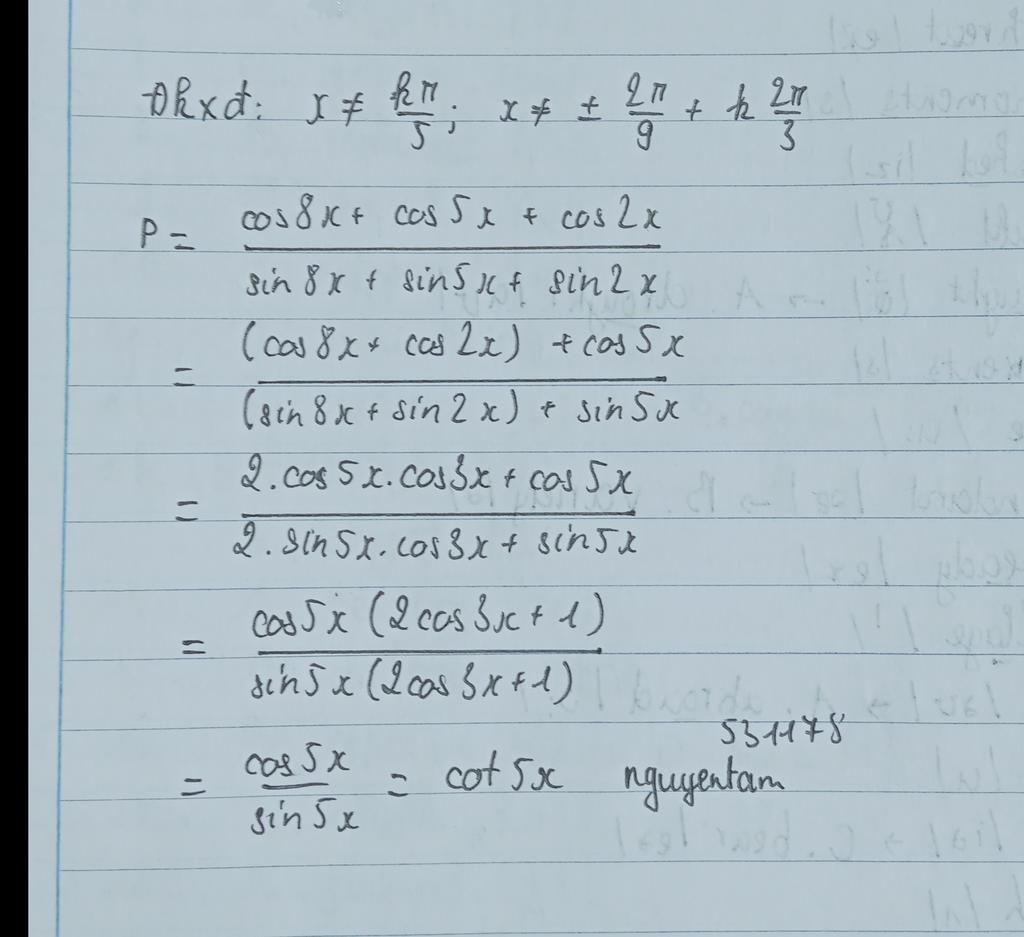 Đkxđ: x ≠ kπ/5; x ≠ ± 2π/9 + k 2π/3
P = (cos8x + cos5x + cos2x)/(sin8x + sin5x + sin2x)
= ((cos8x + cos2x) + cos5x)/((sin8x + sin2x) + sin5x)
= (2.cos5x.cos3x + cos5x)/(2.sin5x.cos3x + sin5x)
= (cos5x(2cos3x + 1))/(sin5x(2cos3x + 1))
= cos5x/sin5x = cot5x
531178
nguyentam